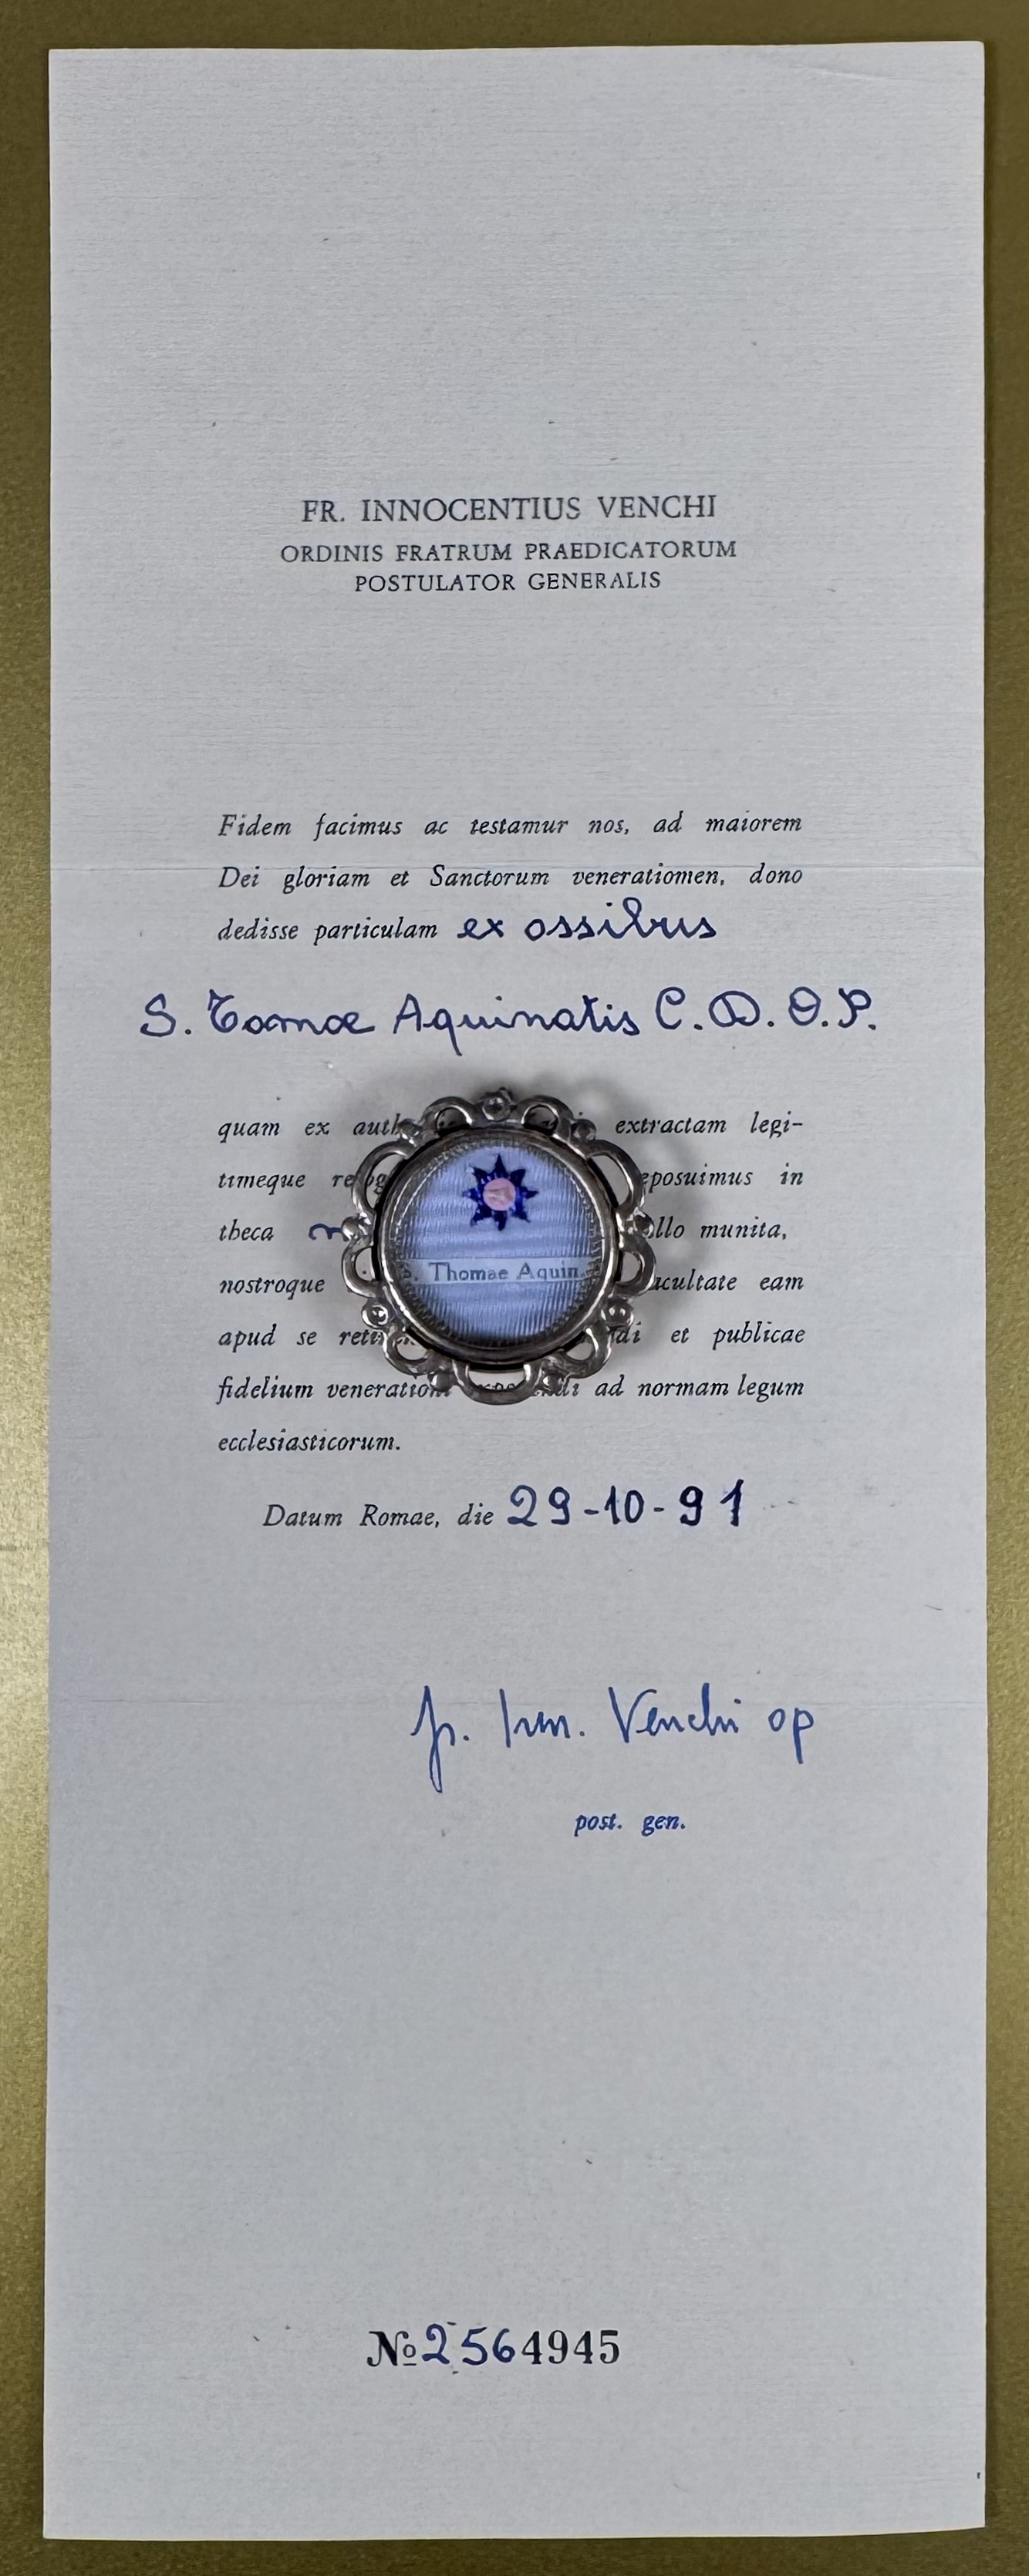 FR. INNOCENTIUS VENCHI
ORDINIS FRATRUM PRAEDICATORUM
POSTULATOR GENERALIS
Fidem facimus ac testamur nos, ad maiorem
Dei gloriam et Sanctorum veneratiomen, dono
dedisse particulam ex ossibus
S. Tomae Aquinatis C. D. O. P.
quam ex extractam legi-
timeque in
theca munita,
S. Thomae Aquin.
nostroque eam
apud se et publicae
fidelium ad normam legum
ecclesiasticorum.
Datum Romae, die 29-10-91
fr. Inn. Venchi op
post. gen.
No 2564945